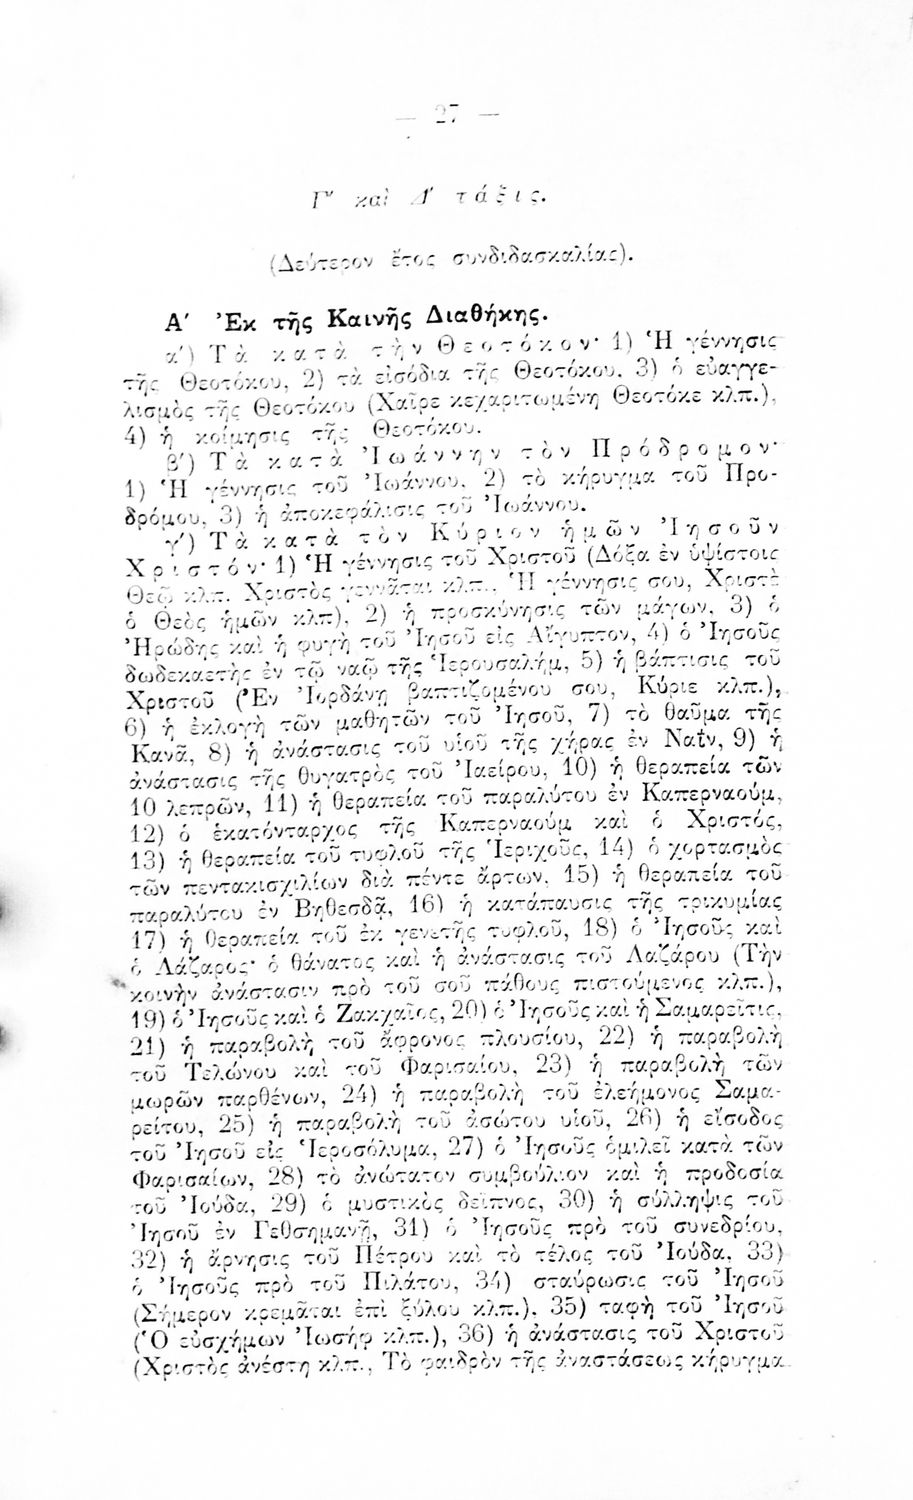 — 27 —
Γ' καὶ Δ' τάξις.
(Δεύτερον ἔτος συνδιδασκαλίας).
Α' Ἐκ τῆς Καινῆς Διαθήκης.
α') Τὰ κατὰ τὴν Θεοτόκον· 1) Ἡ γέννησις
τῆς Θεοτόκου, 2) τὰ εἰσόδια τῆς Θεοτόκου. 3) ὁ εὐαγγε-
λισμὸς τῆς Θεοτόκου (Χαῖρε κεχαριτωμένη Θεοτόκε κλπ.),
4) ἡ κοίμησις τῆς Θεοτόκου.
β') Τὰ κατὰ Ἰωάννην τὸν Πρόδρομον·
1) Ἡ γέννησις τοῦ Ἰωάννου, 2) τὸ κήρυγμα τοῦ Προ-
δρόμου, 3) ἡ ἀποκεφάλισις τοῦ Ἰωάννου.
γ') Τὰ κατὰ τὸν Κύριον ἡμῶν Ἰησοῦν
Χριστόν· 1) Ἡ γέννησις τοῦ Χριστοῦ (Δόξα ἐν ὑψίστοις
Θεῷ κλπ. Χριστὸς γεννᾶται κλπ., Ἡ γέννησις σου, Χριστὲ
ὁ Θεὸς ἡμῶν κλπ), 2) ἡ προσκύνησις τῶν μάγων, 3) ὁ
Ἡρώδης καὶ ἡ φυγὴ τοῦ Ἰησοῦ εἰς Αἴγυπτον, 4) ὁ Ἰησοῦς
δωδεκαετὴς ἐν τῷ ναῷ τῆς Ἱερουσαλήμ, 5) ἡ βάπτισις τοῦ
Χριστοῦ (Ἐν Ἰορδάνῃ βαπτιζομένου σου, Κύριε κλπ.),
6) ἡ ἐκλογὴ τῶν μαθητῶν τοῦ Ἰησοῦ, 7) τὸ θαῦμα τῆς
Κανᾶ, 8) ἡ ἀνάστασις τοῦ υἱοῦ τῆς χήρας ἐν Ναΐν, 9) ἡ
ἀνάστασις τῆς θυγατρὸς τοῦ Ἰαείρου, 10) ἡ θεραπεία τῶν
10 λεπρῶν, 11) ἡ θεραπεία τοῦ παραλύτου ἐν Καπερναούμ,
12) ὁ ἑκατόνταρχος τῆς Καπερναοὺμ καὶ ὁ Χριστός,
13) ἡ θεραπεία τοῦ τυφλοῦ τῆς Ἱεριχοῦς, 14) ὁ χορτασμὸς
τῶν πεντακισχιλίων διὰ πέντε ἄρτων, 15) ἡ θεραπεία τοῦ
παραλύτου ἐν Βηθεσδᾷ, 16) ἡ κατάπαυσις τῆς τρικυμίας
17) ἡ θεραπεία τοῦ ἐκ γενετῆς τυφλοῦ, 18) ὁ Ἰησοῦς καὶ
ὁ Λάζαρος· ὁ θάνατος καὶ ἡ ἀνάστασις τοῦ Λαζάρου (Τὴν
κοινὴν ἀνάστασιν πρὸ τοῦ σοῦ πάθους πιστούμενος κλπ.),
19) ὁ Ἰησοῦς καὶ ὁ Ζακχαῖος, 20) ὁ Ἰησοῦς καὶ ἡ Σαμαρεῖτις,
21) ἡ παραβολὴ τοῦ ἄφρονος πλουσίου, 22) ἡ παραβολὴ
τοῦ Τελώνου καὶ τοῦ Φαρισαίου, 23) ἡ παραβολὴ τῶν
μωρῶν παρθένων, 24) ἡ παραβολὴ τοῦ ἐλεήμονος Σαμα-
ρείτου, 25) ἡ παραβολὴ τοῦ ἀσώτου υἱοῦ, 26) ἡ εἴσοδος
τοῦ Ἰησοῦ εἰς Ἱεροσόλυμα, 27) ὁ Ἰησοῦς ὁμιλεῖ κατὰ τῶν
Φαρισαίων, 28) τὸ ἀνώτατον συμβούλιον καὶ ἡ προδοσία
τοῦ Ἰούδα, 29) ὁ μυστικὸς δεῖπνος, 30) ἡ σύλληψις τοῦ
Ἰησοῦ ἐν Γεθσημανῇ, 31) ὁ Ἰησοῦς πρὸ τοῦ συνεδρίου,
32) ἡ ἄρνησις τοῦ Πέτρου καὶ τὸ τέλος τοῦ Ἰούδα, 33)
ὁ Ἰησοῦς πρὸ τοῦ Πιλάτου, 34) σταύρωσις τοῦ Ἰησοῦ
(Σήμερον κρεμᾶται ἐπὶ ξύλου κλπ.), 35) ταφὴ τοῦ Ἰησοῦ
(Ὁ εὐσχήμων Ἰωσὴφ κλπ.), 36) ἡ ἀνάστασις τοῦ Χριστοῦ
(Χριστὸς ἀνέστη κλπ., Τὸ φαιδρὸν τῆς ἀναστάσεως κήρυγμα